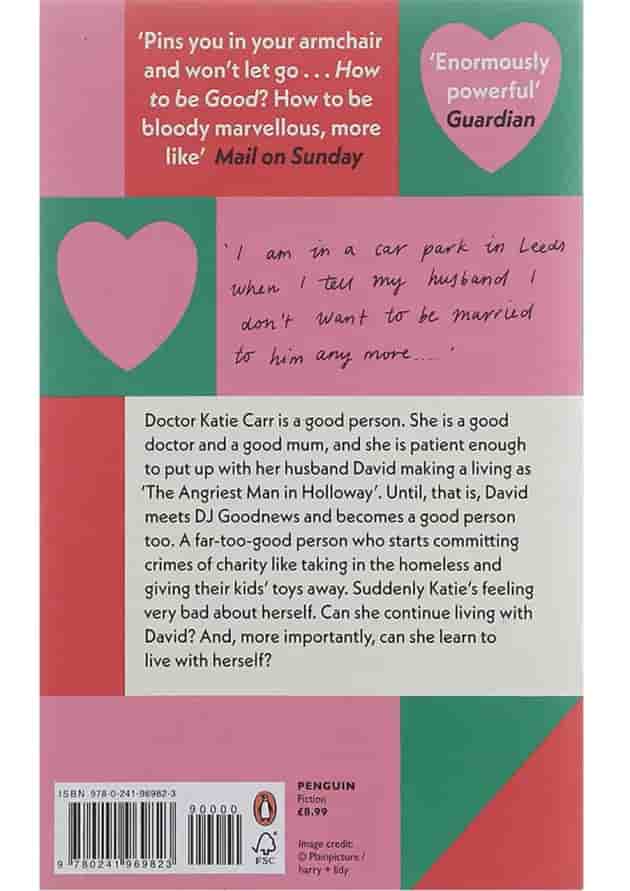 ‘Pins you in your armchair
and won’t let go . . . How
to be Good? How to be
bloody marvellous, more
like’ Mail on Sunday
‘Enormously
powerful’
Guardian
‘I am in a car park in Leeds
when I tell my husband I
don't want to be married
to him any more.....’
Doctor Katie Carr is a good person. She is a good
doctor and a good mum, and she is patient enough
to put up with her husband David making a living as
‘The Angriest Man in Holloway’. Until, that is, David
meets DJ Goodnews and becomes a good person
too. A far-too-good person who starts committing
crimes of charity like taking in the homeless and
giving their kids’ toys away. Suddenly Katie’s feeling
very bad about herself. Can she continue living with
David? And, more importantly, can she learn to
live with herself?
ISBN 978-0-241-96982-3
90000
9 780241 969823
FSC
PENGUIN
Fiction
£8.99
Image credit:
© Plainpicture /
harry + lidy